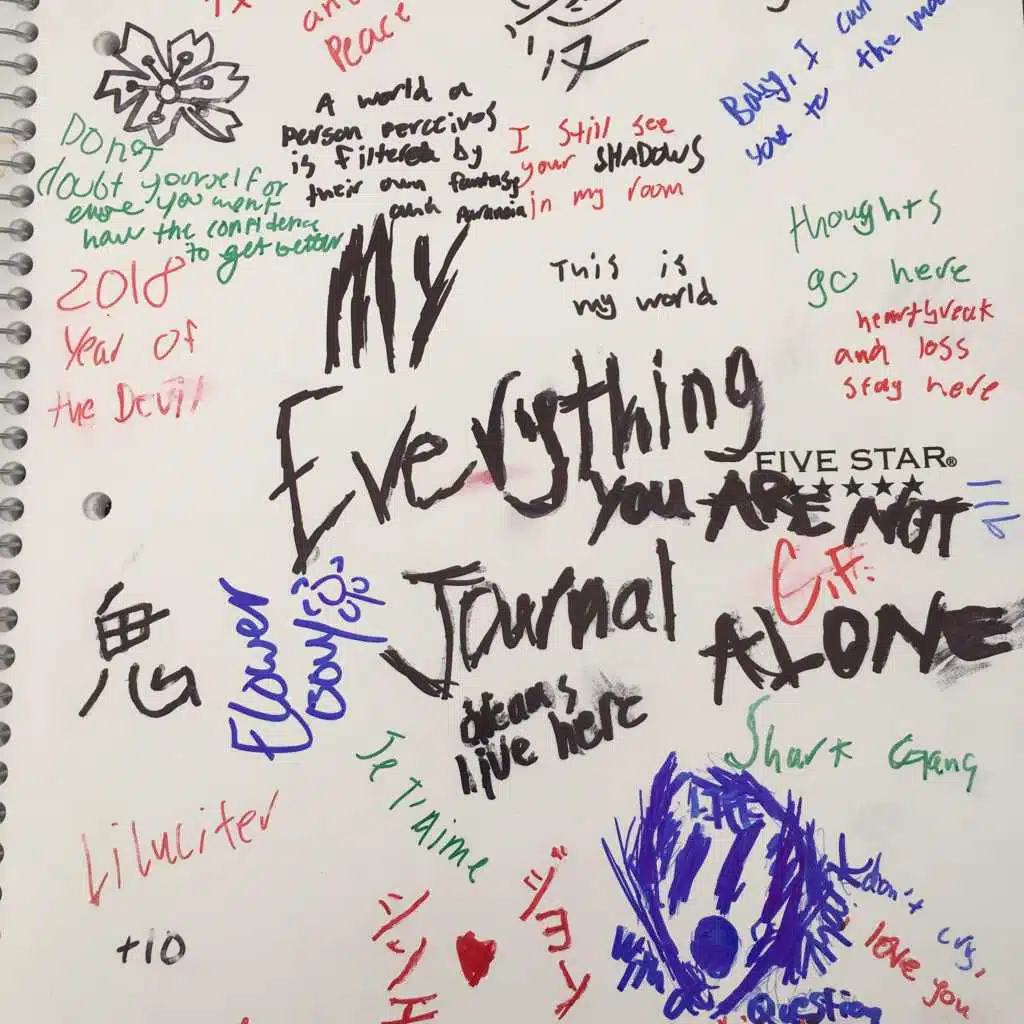 and
Peace
'17
Baby, I can
the
your to
A world a
person perceives
is filtered by
their own fantasy
and paranoia
I still see
your SHADOWS
in my room
Dont
doubt yourself or
else you wont
have the confidence
to get better
2018
Year of
the Devil
This is
my world
thoughts
go here
heartbreak
and loss
stay here
My
Everything
Journal
FIVE STAR®
you ARE NOT
ALONE
G.F.
鬼
Flower
BOY
dreams
live here
Je t'aime
Shark Gang
Lilucifer
+10
LIFE
With
Question
don't
cry,
I love you